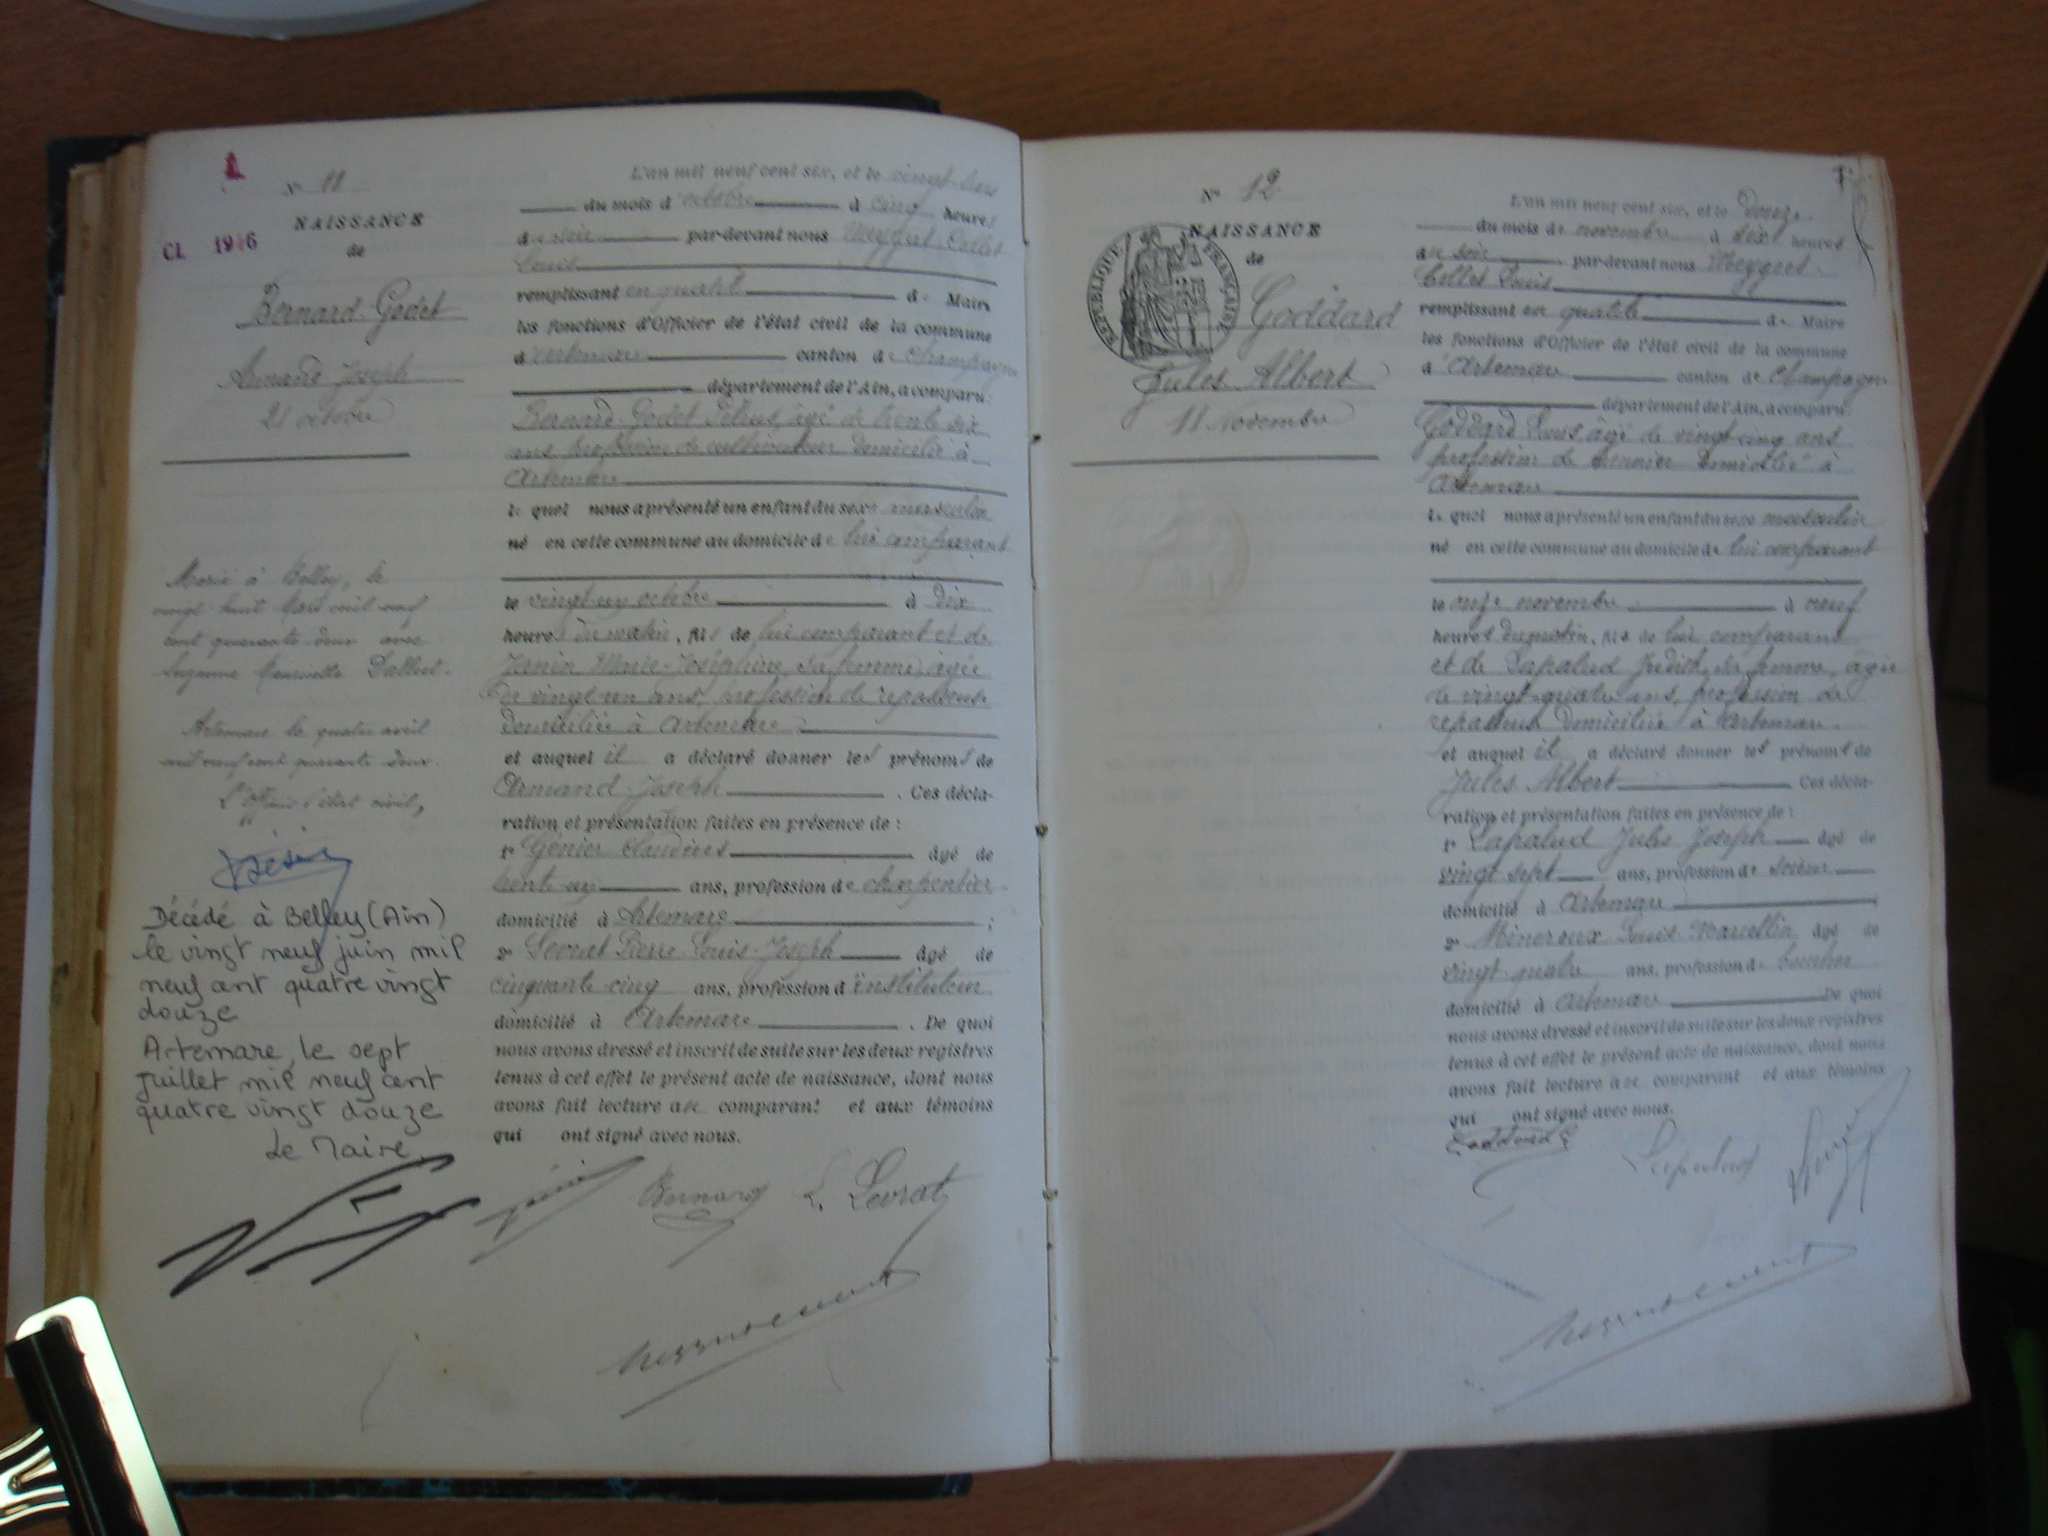 N° 11
NAISSANCE
de
CL 1926
Bernard-Godet
Armand Joseph
21 octobre
Marié à Belley, le
vingt huit mars mil neuf
cent quarante deux avec
Suzanne Henriette
Artemare le quatre avril
mil neuf cent quarante deux.
L'Off. de l'état civil,
Décédé à Belley (Ain)
le vingt neuf juin mil
neuf cent quatre vingt
douze
Artemare, le sept
juillet mil neuf cent
quatre vingt douze
Le Maire
L'an mil neuf cent six, et le vingt-trois
du mois d'octobre à cinq heures
du soir par-devant nous Meygret-Collet
Louis
remplissant en qualité de Maire
les fonctions d'Officier de l'état civil de la commune
d'Artemare canton de Champagne
département de l'Ain, a comparu:
Bernard-Godet âgé de trente six
ans profession de cultivateur domicilié à
Artemare
lequel nous a présenté un enfant du sexe masculin
né en cette commune au domicile de lui comparant
le vingt-un octobre à dix
heures du matin, fils de lui comparant et de
Janin Marie-Joséphine, sa femme, âgée
de vingt un ans, profession de repasseuse
domiciliée à Artemare
et auquel il a déclaré donner les prénoms de
Armand-Joseph. Ces décla-
ration et présentation faites en présence de:
1° Génier Claudius âgé de
trente un ans, profession de charpentier
domicilié à Artemare;
2° Levrat Pierre-Louis-Joseph âgé de
cinquante cinq ans, profession d'instituteur
domicilié à Artemare. De quoi
nous avons dressé et inscrit de suite sur les deux registres
tenus à cet effet le présent acte de naissance, dont nous
avons fait lecture au comparant et aux témoins
qui ont signé avec nous.
Génier Bernard L. Levrat
N° 12
NAISSANCE
de
RÉPUBLIQUE FRANÇAISE
Goddard
Jules Albert
11 novembre
L'an mil neuf cent six, et le douze
du mois de novembre à six heures
du soir par-devant nous Meygret-
Collet Louis
remplissant en qualité de Maire
les fonctions d'Officier de l'état civil de la commune
d'Artemare canton de Champagne
département de l'Ain, a comparu:
Goddard Louis âgé de vingt-cinq ans
profession de domicilié à
Artemare
lequel nous a présenté un enfant du sexe masculin
né en cette commune au domicile de lui comparant
le onze novembre à neuf
heures du matin, fils de lui comparant
et de Lapalud Judith, sa femme, âgée
de vingt-quatre ans, profession de
repasseuse domiciliée à Artemare.
et auquel il a déclaré donner les prénoms de
Jules Albert Ces décla-
ration et présentation faites en présence de:
1° Lapalud Jules Joseph âgé de
vingt-sept ans, profession de scieur
domicilié à Artemare
2° Mineroux Louis Marcellin âgé de
vingt-quatre ans, profession de boucher
domicilié à Artemare De quoi
nous avons dressé et inscrit de suite sur les deux registres
tenus à cet effet le présent acte de naissance, dont nous
avons fait lecture au comparant et aux témoins
qui ont signé avec nous.
Goddard Lapalud